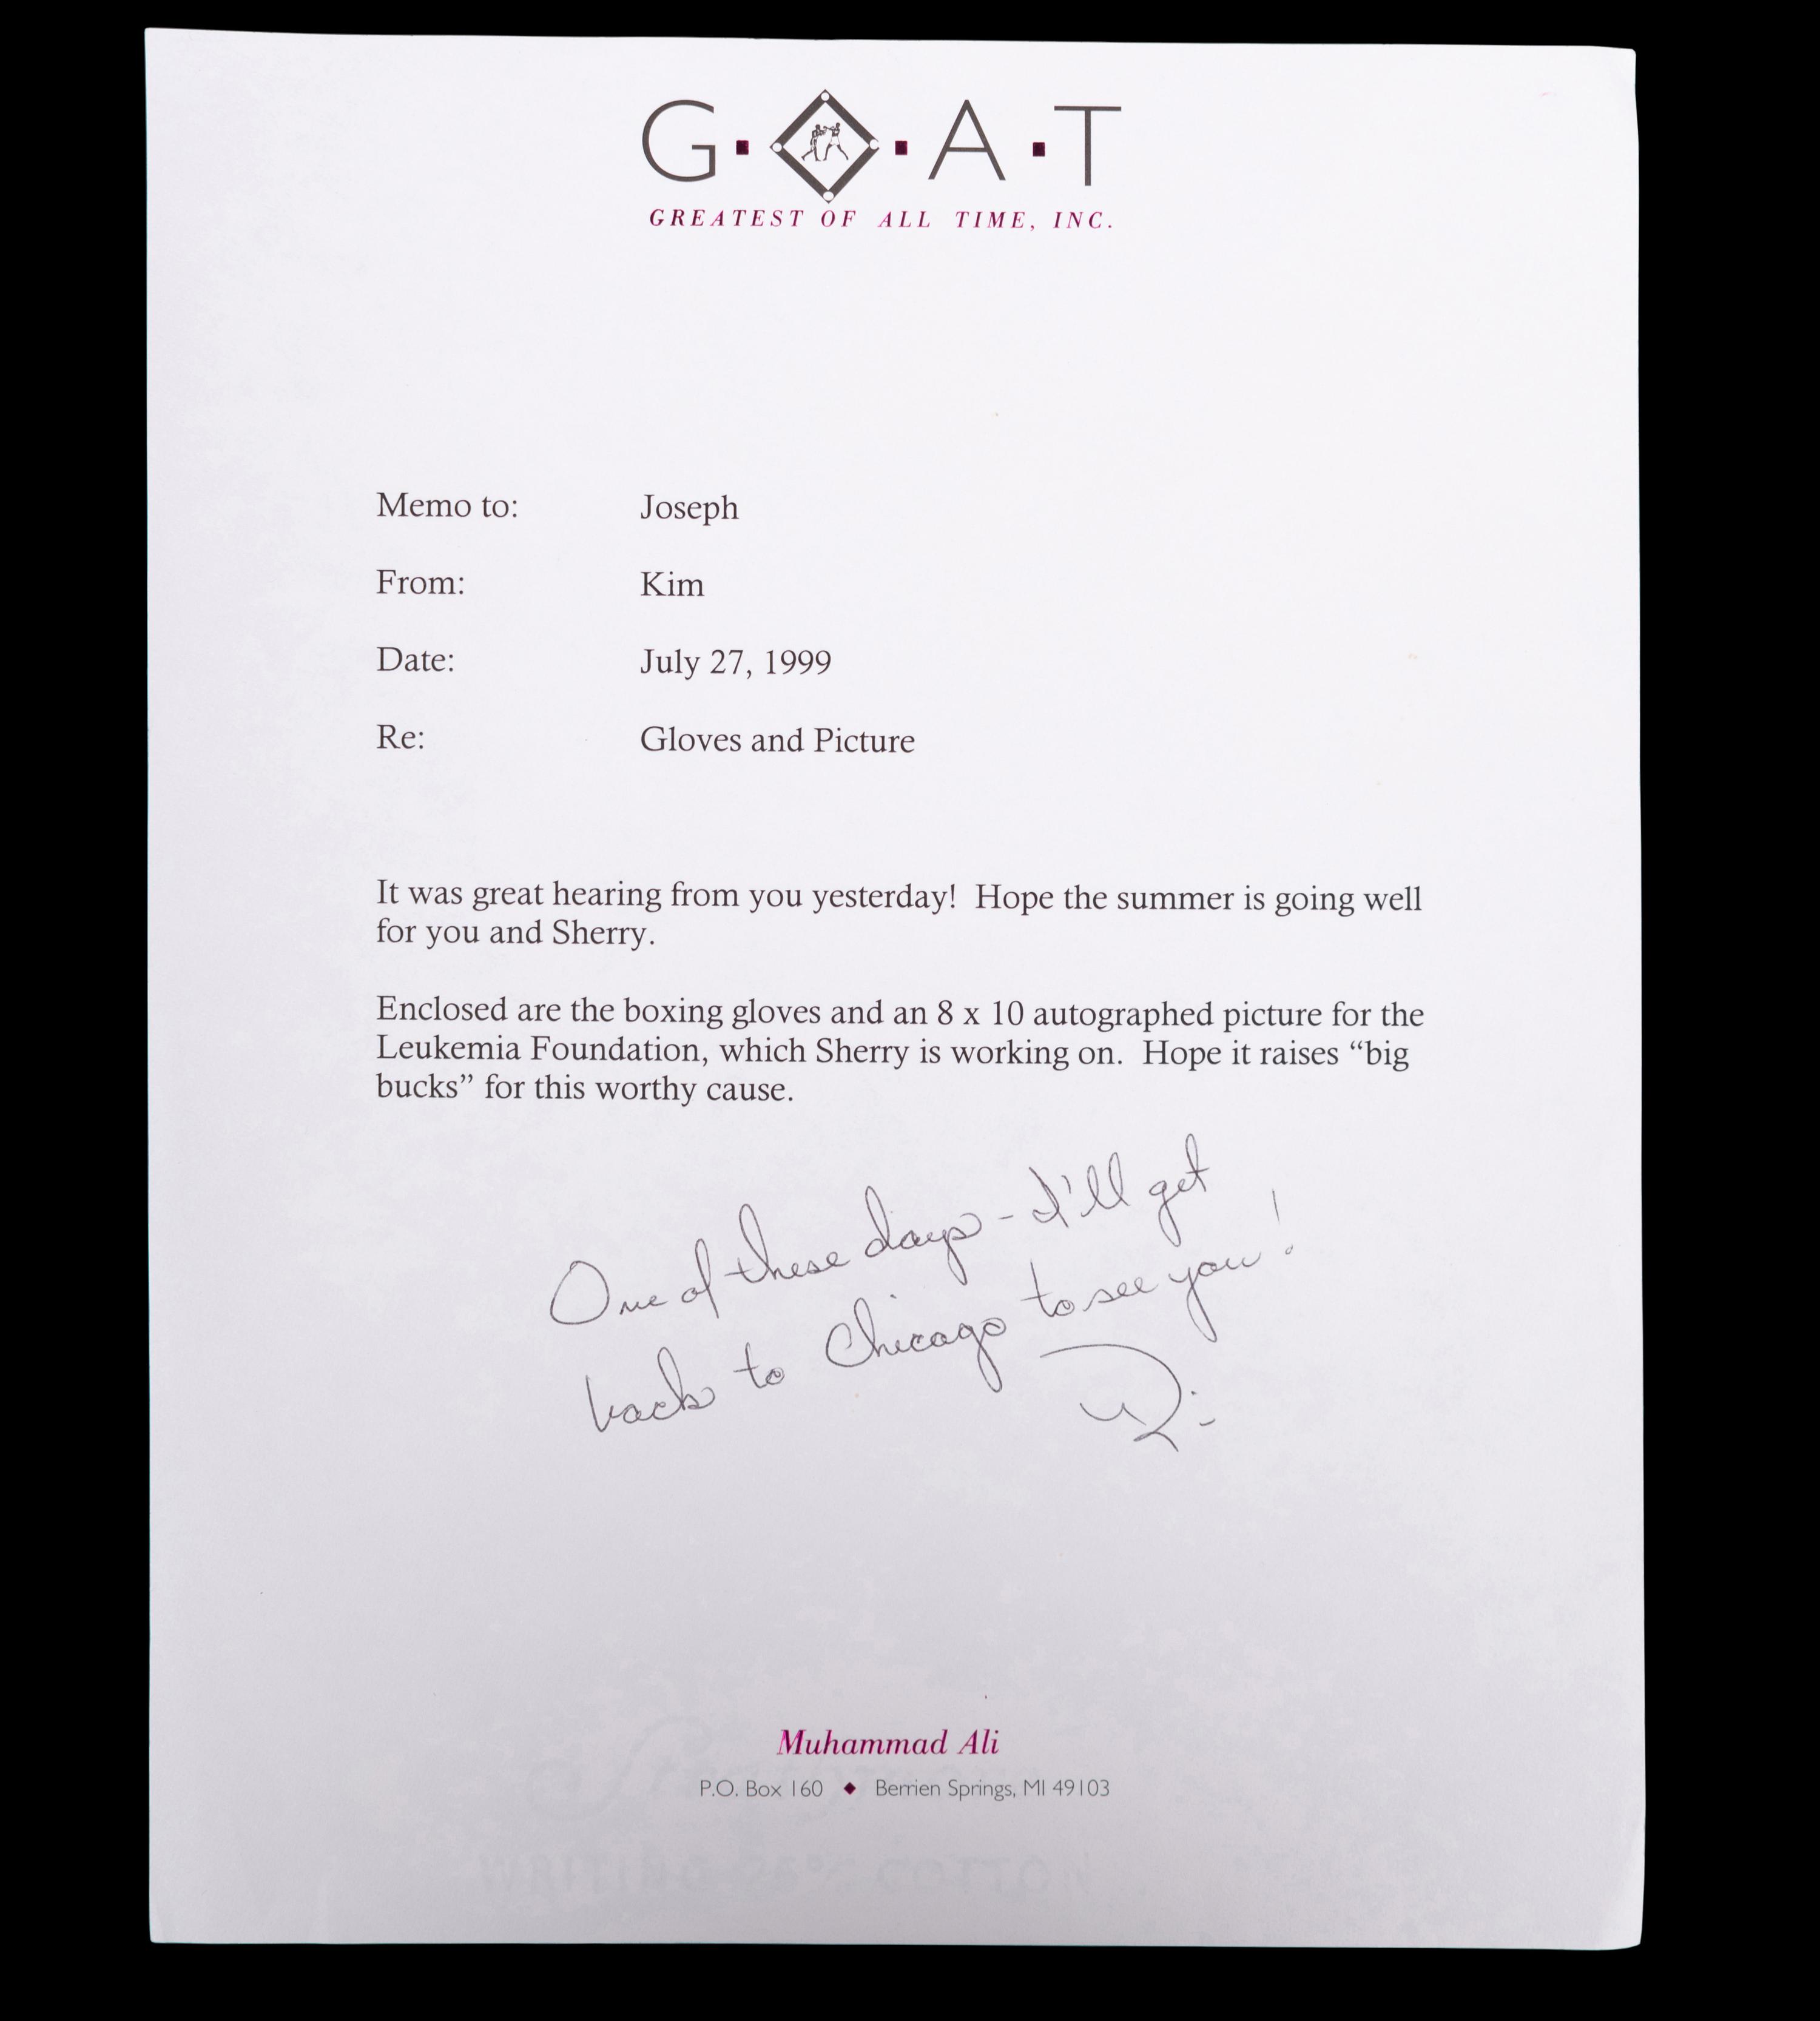 G·O·A·T
GREATEST OF ALL TIME, INC.
Memo to: Joseph
From: Kim
Date: July 27, 1999
Re: Gloves and Picture
It was great hearing from you yesterday! Hope the summer is going well
for you and Sherry.
Enclosed are the boxing gloves and an 8 x 10 autographed picture for the
Leukemia Foundation, which Sherry is working on. Hope it raises “big
bucks” for this worthy cause.
One of these days - I'll get
back to Chicago to see you!
Muhammad Ali
P.O. Box 160 ◆ Berrien Springs, MI 49103
WRITING 25% COTTON